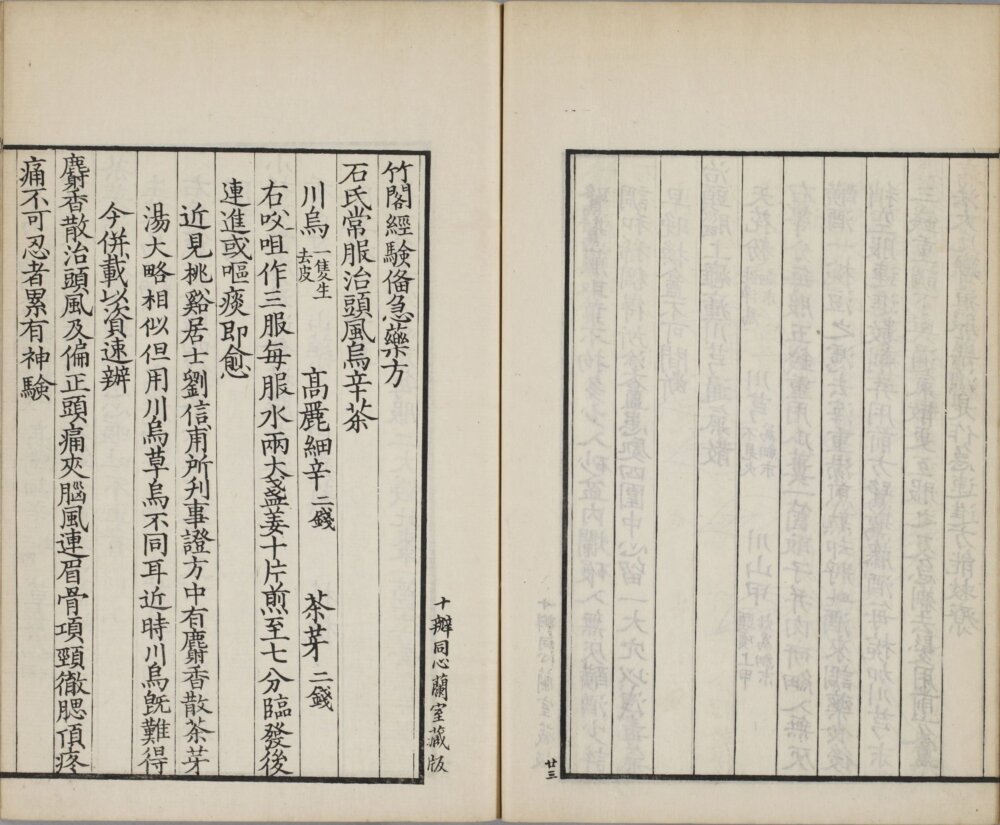 廿三
十瓣同心蘭室藏版
竹閣經驗俻急藥方
石氏常服治頭風烏辛茶
川烏一隻生去皮 高麗細辛二錢 茶芽二錢
右㕮咀作三服每服水兩大盞姜十片煎至七分臨發後
連進或嘔痰即愈
近見桃谿居士劉信甫所刋事證方中有麝香散茶芽
湯大略相似但用川烏草烏不同耳近時川烏旣難得
今併載以資速辦
麝香散治頭風及偏正頭痛夾腦風連眉骨項頸徹腮頂疼
痛不可忍者累有神驗